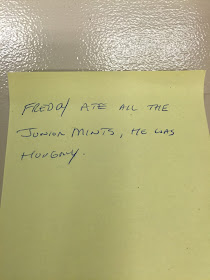 FREDDY ATE ALL THE
JUNIOR MINTS, HE WAS
HUNGRY.